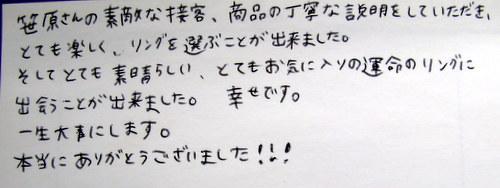 笹原さんの素敵な接客、商品の丁寧な説明をしていただき、
とても楽しく、リングを選ぶことが出来ました。
そしてとても素晴らしい、とてもお気に入りの運命のリングに
出会うことが出来ました。 幸せです。
一生大事にします。
本当にありがとうございました!!!